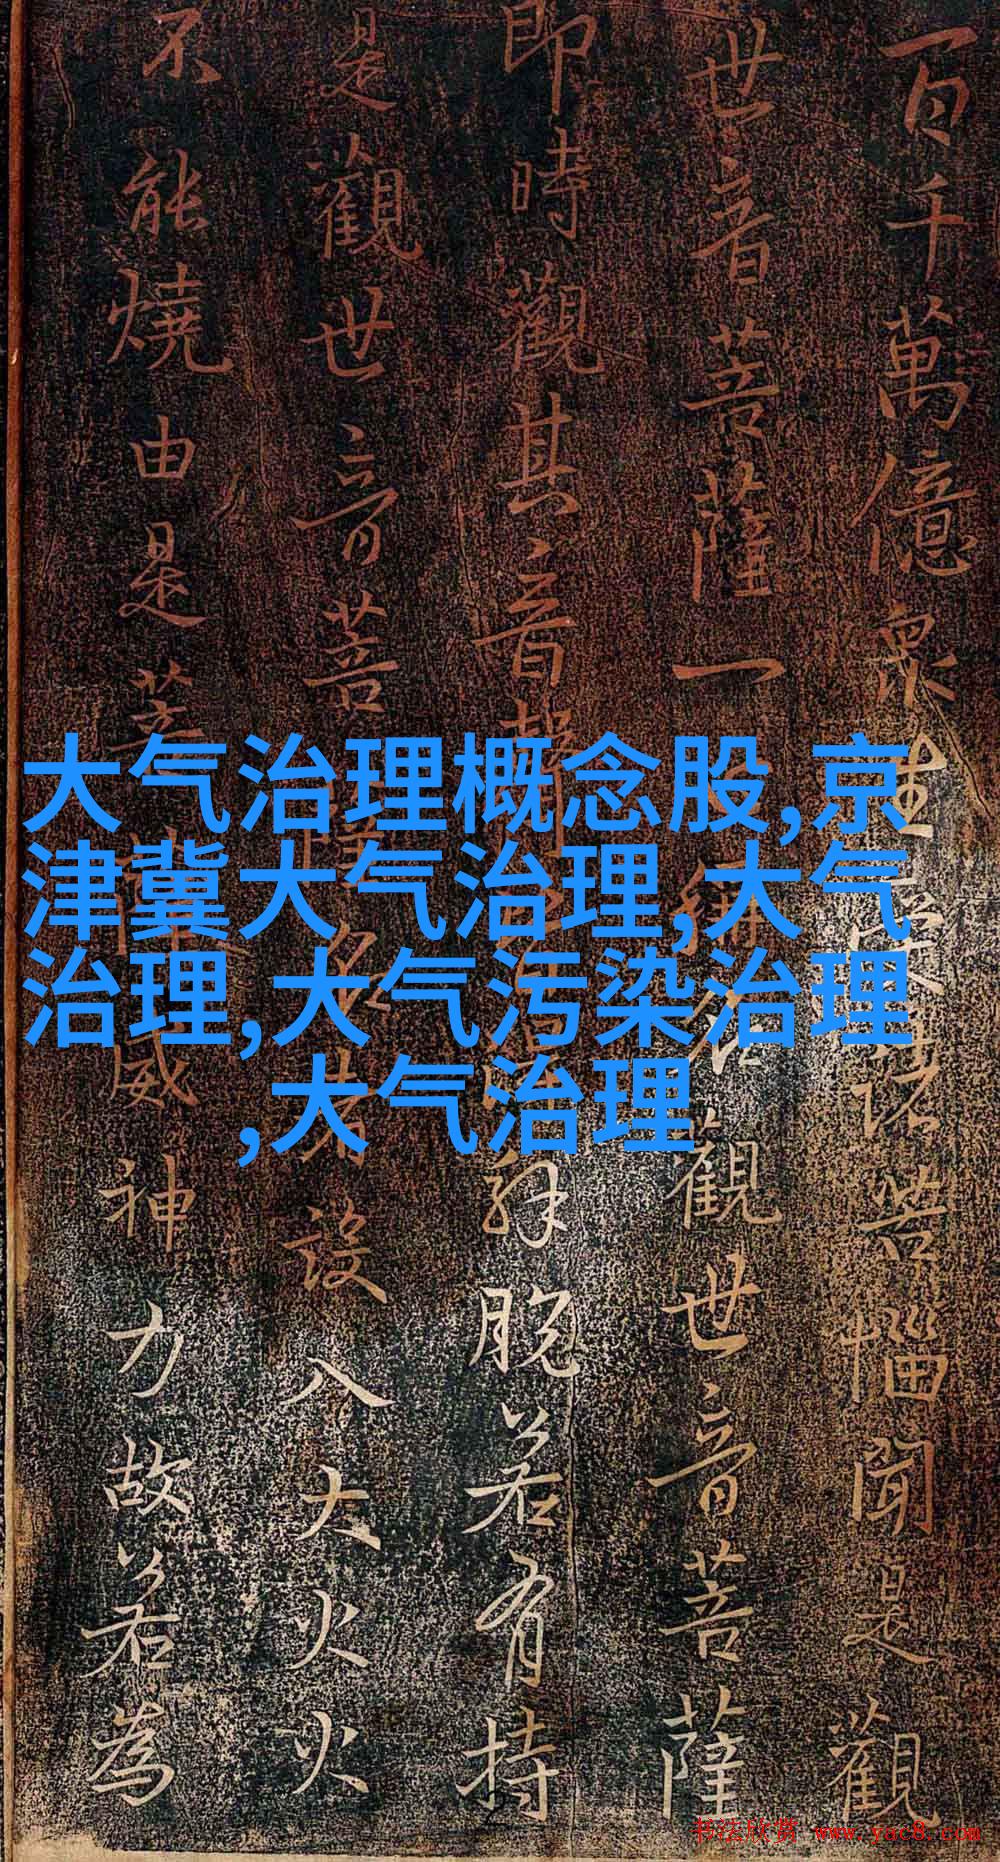 百千萬億眾生受諸苦惱聞是觀
世音菩薩一稱名觀世音菩薩
即時觀其音聲解脫若有持
是觀世音菩名者設入大火火
不能燒由是菩威神力故若為
大气治理概念股,京
津冀大气治理,大气
治理,大气污染治理
,大气治理
书法欣赏 www.yac8.com